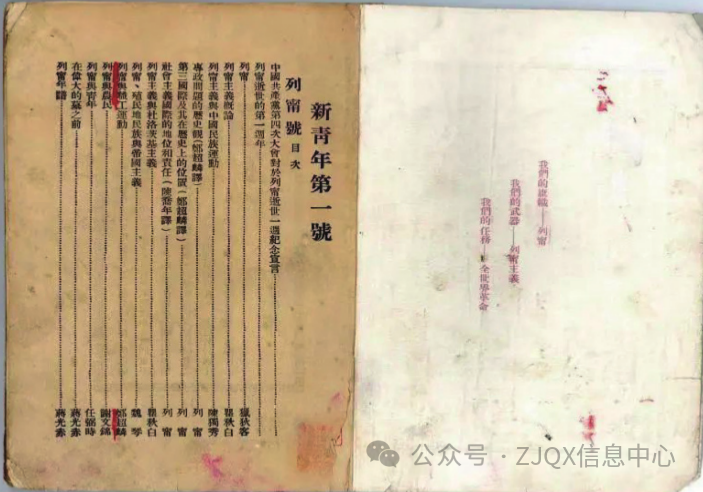 我們的旗幟——列甯
我們的武器——列甯主義
我們的任務——全世界革命
新青年第一號
列甯號目次
中國共產黨第四次大會對於列甯逝世一週紀念宣言
列甯逝世的第一週年
列甯 獵狄客
列甯主義概論 瞿秋白
列甯主義與中國民族運動 陳獨秀
專政問題的歷史觀(鄭超麟譯) 列甯
第三國際及其在歷史上的位置(鄭超麟譯) 列甯
社會主義國際的地位和責任(陳喬年譯) 列甯
列甯主義與杜洛茨基主義 瞿秋白
列甯、殖民地民族與帝國主義 魏琴
列甯與職工運動 鄭超麟
列甯與農民 謝文錦
列甯與青年 任弼時
在偉大的墓之前 蔣光赤
列甯年譜 蔣光赤
公众号 · ZJQX信息中心